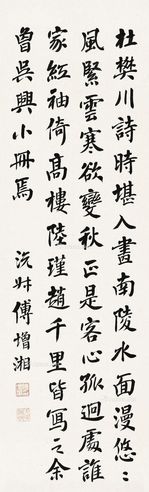 杜樊川詩時堪入畫南陵水面漫悠〻
風緊雲寒欲變秋正是客心孤迥處誰
家紅袖倚高樓陸瑾趙千里皆寫之余
曾吳興小冊焉
沅叔傅增湘